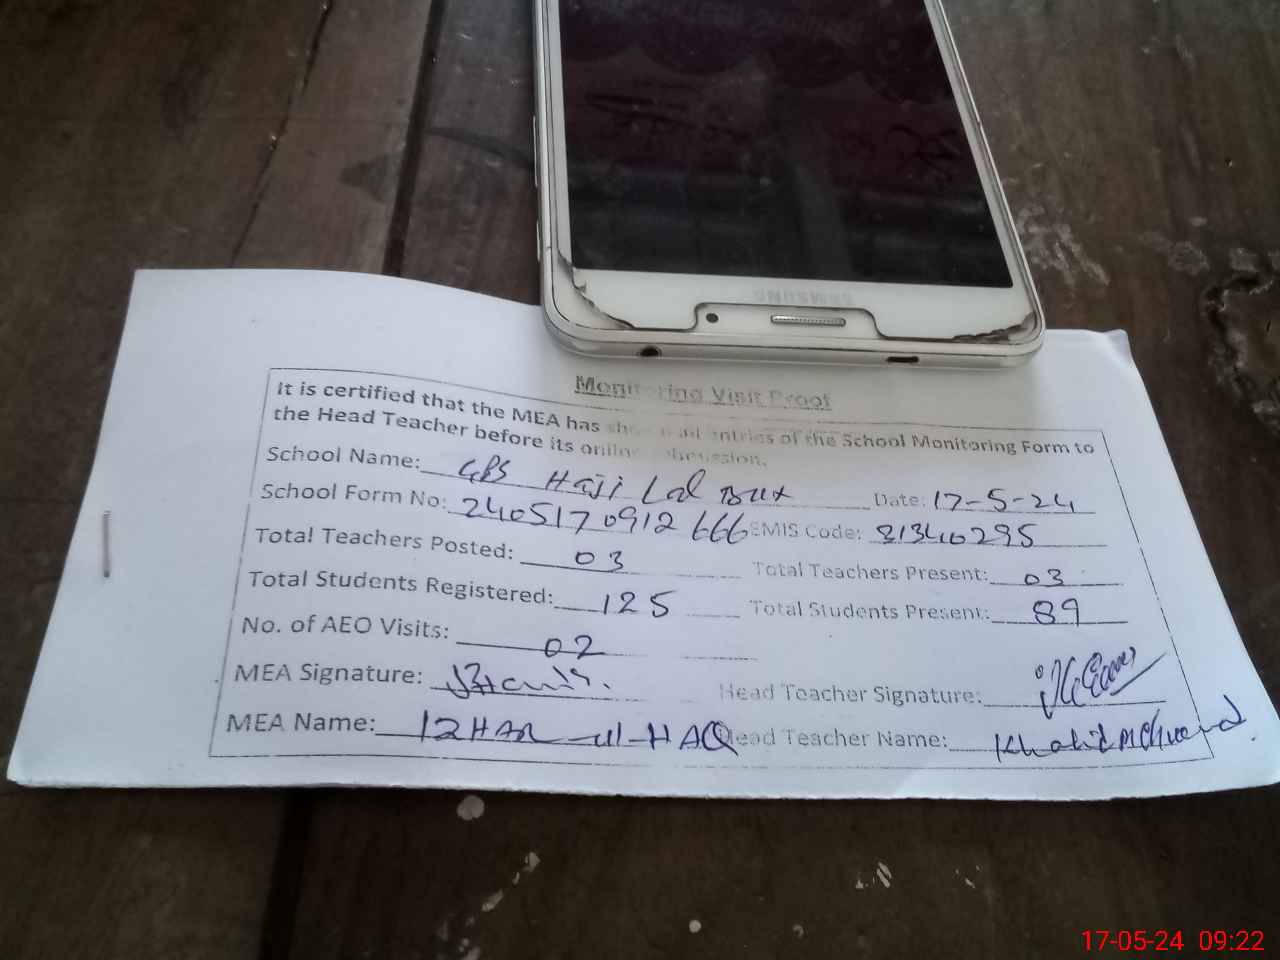 SAMSUNG
Monitoring Visit Proof
It is certified that the MEA has entries of the School Monitoring Form to
the Head Teacher before its online submission.
School Name: GPS Haji Lal Bux Date: 17-5-24
School Form No: 240517 0912 666 EMIS Code: 31340295
Total Teachers Posted: 03 Total Teachers Present: 03
Total Students Registered: 125 Total Students Present: 89
No. of AEO Visits: 02
MEA Signature: Head Teacher Signature:
MEA Name: IZHAR-ul-HAQ Head Teacher Name: Khalid
17-05-24 09:22